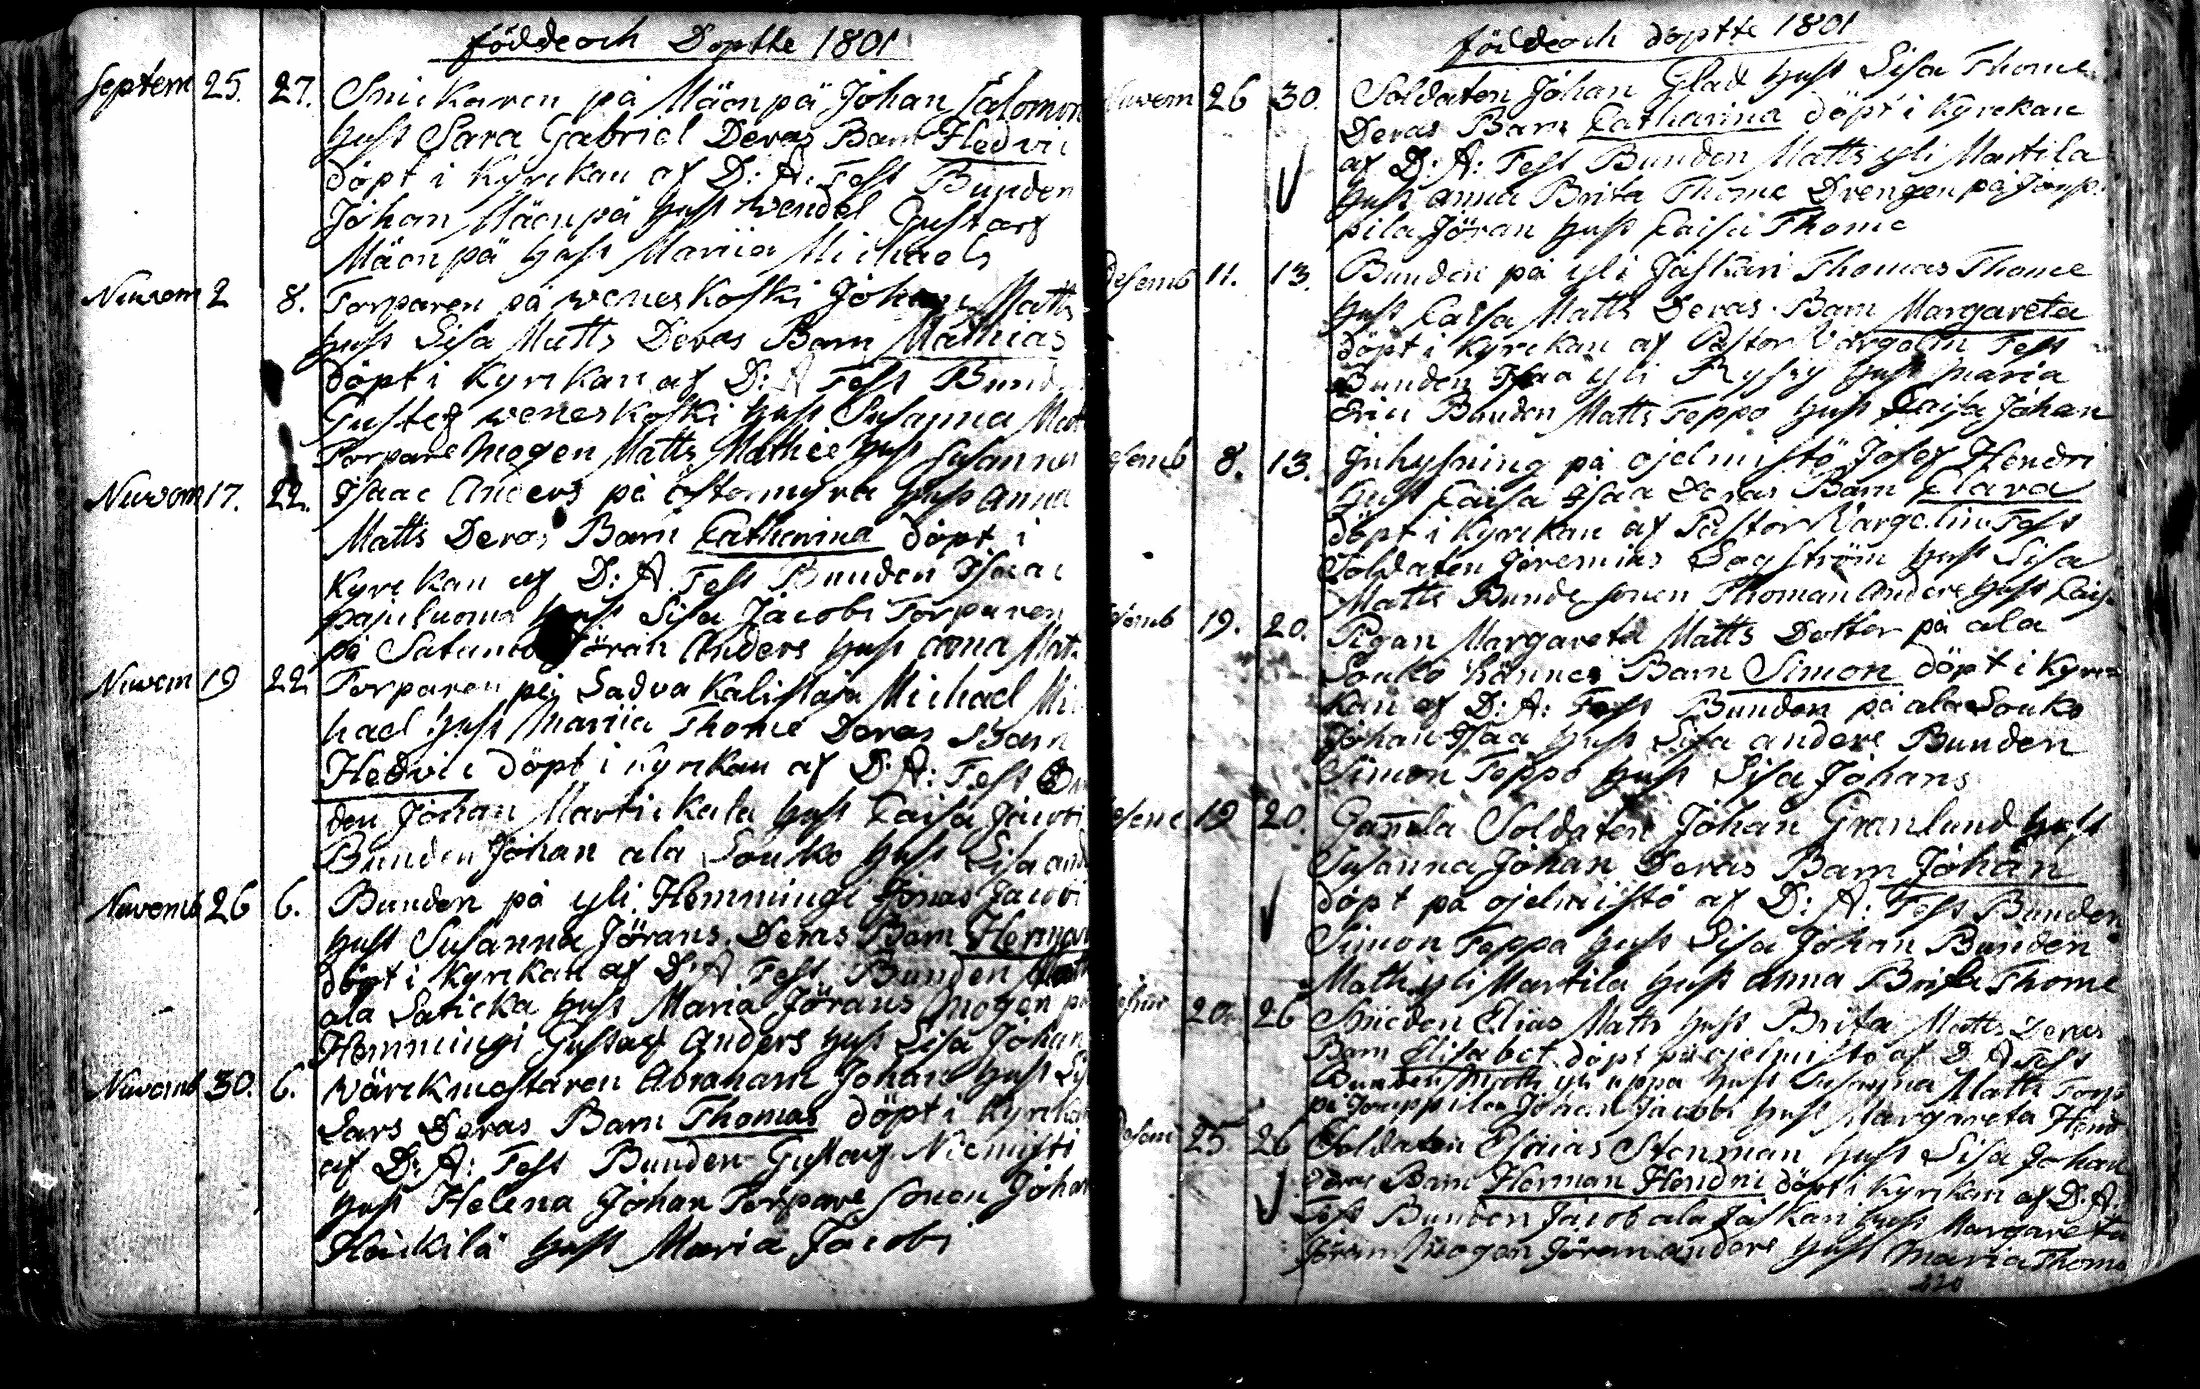 födde och Döptte 1801
Septem 25. 27. Snickaren på Mäenpä Johan Salomon
hust Sara Gabriel Deras Barn Hedvii
döpt i Kyrckan af D: A: Test Bunden
Johan Mäenpä hust Wendel Gustaf
Mäenpä hust Mariia Michaels
Nuvem 2 8. Torparen på weneskoski Johan Matts
hust Lisa Matts Deras Barn Mathias
döpt i Kyrckan af D: A Test Bund
Gustef weneskoski hust Susanna Mat
Torpare mogen Matts Mathie hust Susanna
Nuvem 17. 22. Isaac Anders på östermyra hust Anna
Matts Deras Barn Catharina döpt i
Kyrckan af D: A. Test Bunden Isaac
pajuluoma hust Lisa Jacobs Torparen
på Jöran Anders hust anna Mats
Nuvem 19 22 Torparen på Michael Mi
hael hust mariia Thome Deras Barn
Hedvii döpt i Kyrckan af D: A: Test Bu
den Johan Martickala hust Caisa Jacobi
Bunden Johan ala Souko hust Lisa and
Nuvemb 26 6. Bunden på yli Hemmingi Jonas Jacobi
hust Susanna Jörans Deras Barn Herman
döpt i Kyrckan af D: A Test Bunden Matt
ala Saticka hust Maria Jörans mogen på
Hemmingi Gustaf Anders hust Lisa Johan
Nuvemb 30. 6. wärckmestaren Abraham Johan hust Lis
Lars Deras Barn Thomas döpt i Kyrckan
af D: A: Test Bunden Gustaf Niemisti
hust Helena Johan Torpare sonen Johan
Häickilä hust Maria Jacobi
födde och döptte 1801
Nuvem 26 30. Soldaten Johan Glad hust Lisa Thome
Deras Barn Catharina döpt i Kyrckan
af D: A: Test Bunden Matts yli Martila
hust anna Brita Thome Drengen på Joup
pila Jöran hust Caisa Thome
Desemb 11. 13. Bunden på yli Jäskäri Thomas Thome
hust Caisa Matts Deras Barn Margareta
döpt i Kyrckan af Pastor Test
Bunden Isaa yli hust maria
Eric Bunden Matts Teppo hust Caisa Johan
esemb 8. 13. Inhysning på ojelmistö Josef Hendri
hust Caisa Isaa Deras Barn Clara
döpt i Kyrckan af Pastor Test
Soldaten Jeremias Sogström hust Lisa
Matts Bunde sonen Thoman Anders hust Cais
esemb 19. 20. Pigan Margareta Matts Dotter på ala
Souko hännes Barn Simon döpt i Kyrc
kan af D: A: Test Bunden på ala Souko
Johan Isaa hust Lisa anders Bunden
Simon Teppo hust Lisa Johans
19 20. Gamla Soldaten Johan Granlund hust
Susanna Johan Deras Barn Johan
döpt på ojelmistö af D: A: Test Bunden
Simon Teppo hust Lisa Johan Bunden
Mathi yli Martila hust anna Brita Thome
20. 26 Smeden Elias Matts hust Brita Matts Deras
Barn Elisabet döpt på ojelmistö af D: A Test
Bunden Matts yli hust Susanna Matts Torp
på Jouppila Johan Jacobi hust Margareta Hend
Desem 25 26 Soldaten Esaias Stenman hust Lisa Johan
Deras Barn Herman Hendri döpt i Kyrckan af D: A:
Test Bunden Jacob ala Jäskäri hust Margareta
Jöran mogen Jöran anders hust maria Thome
220